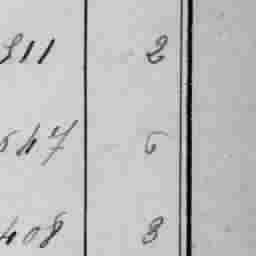 911 2
547 5
408 3